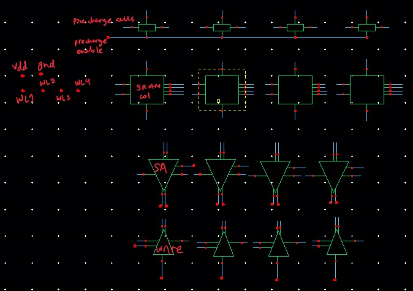 Precharge cells
precharge
enable
Vdd gnd
WL2 WL4
WL1 WL3
SRAM
col
SA
Write